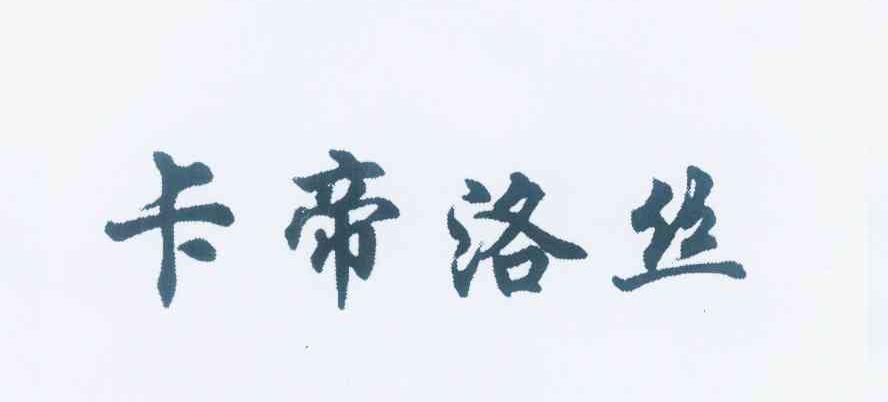 卡帝洛丝